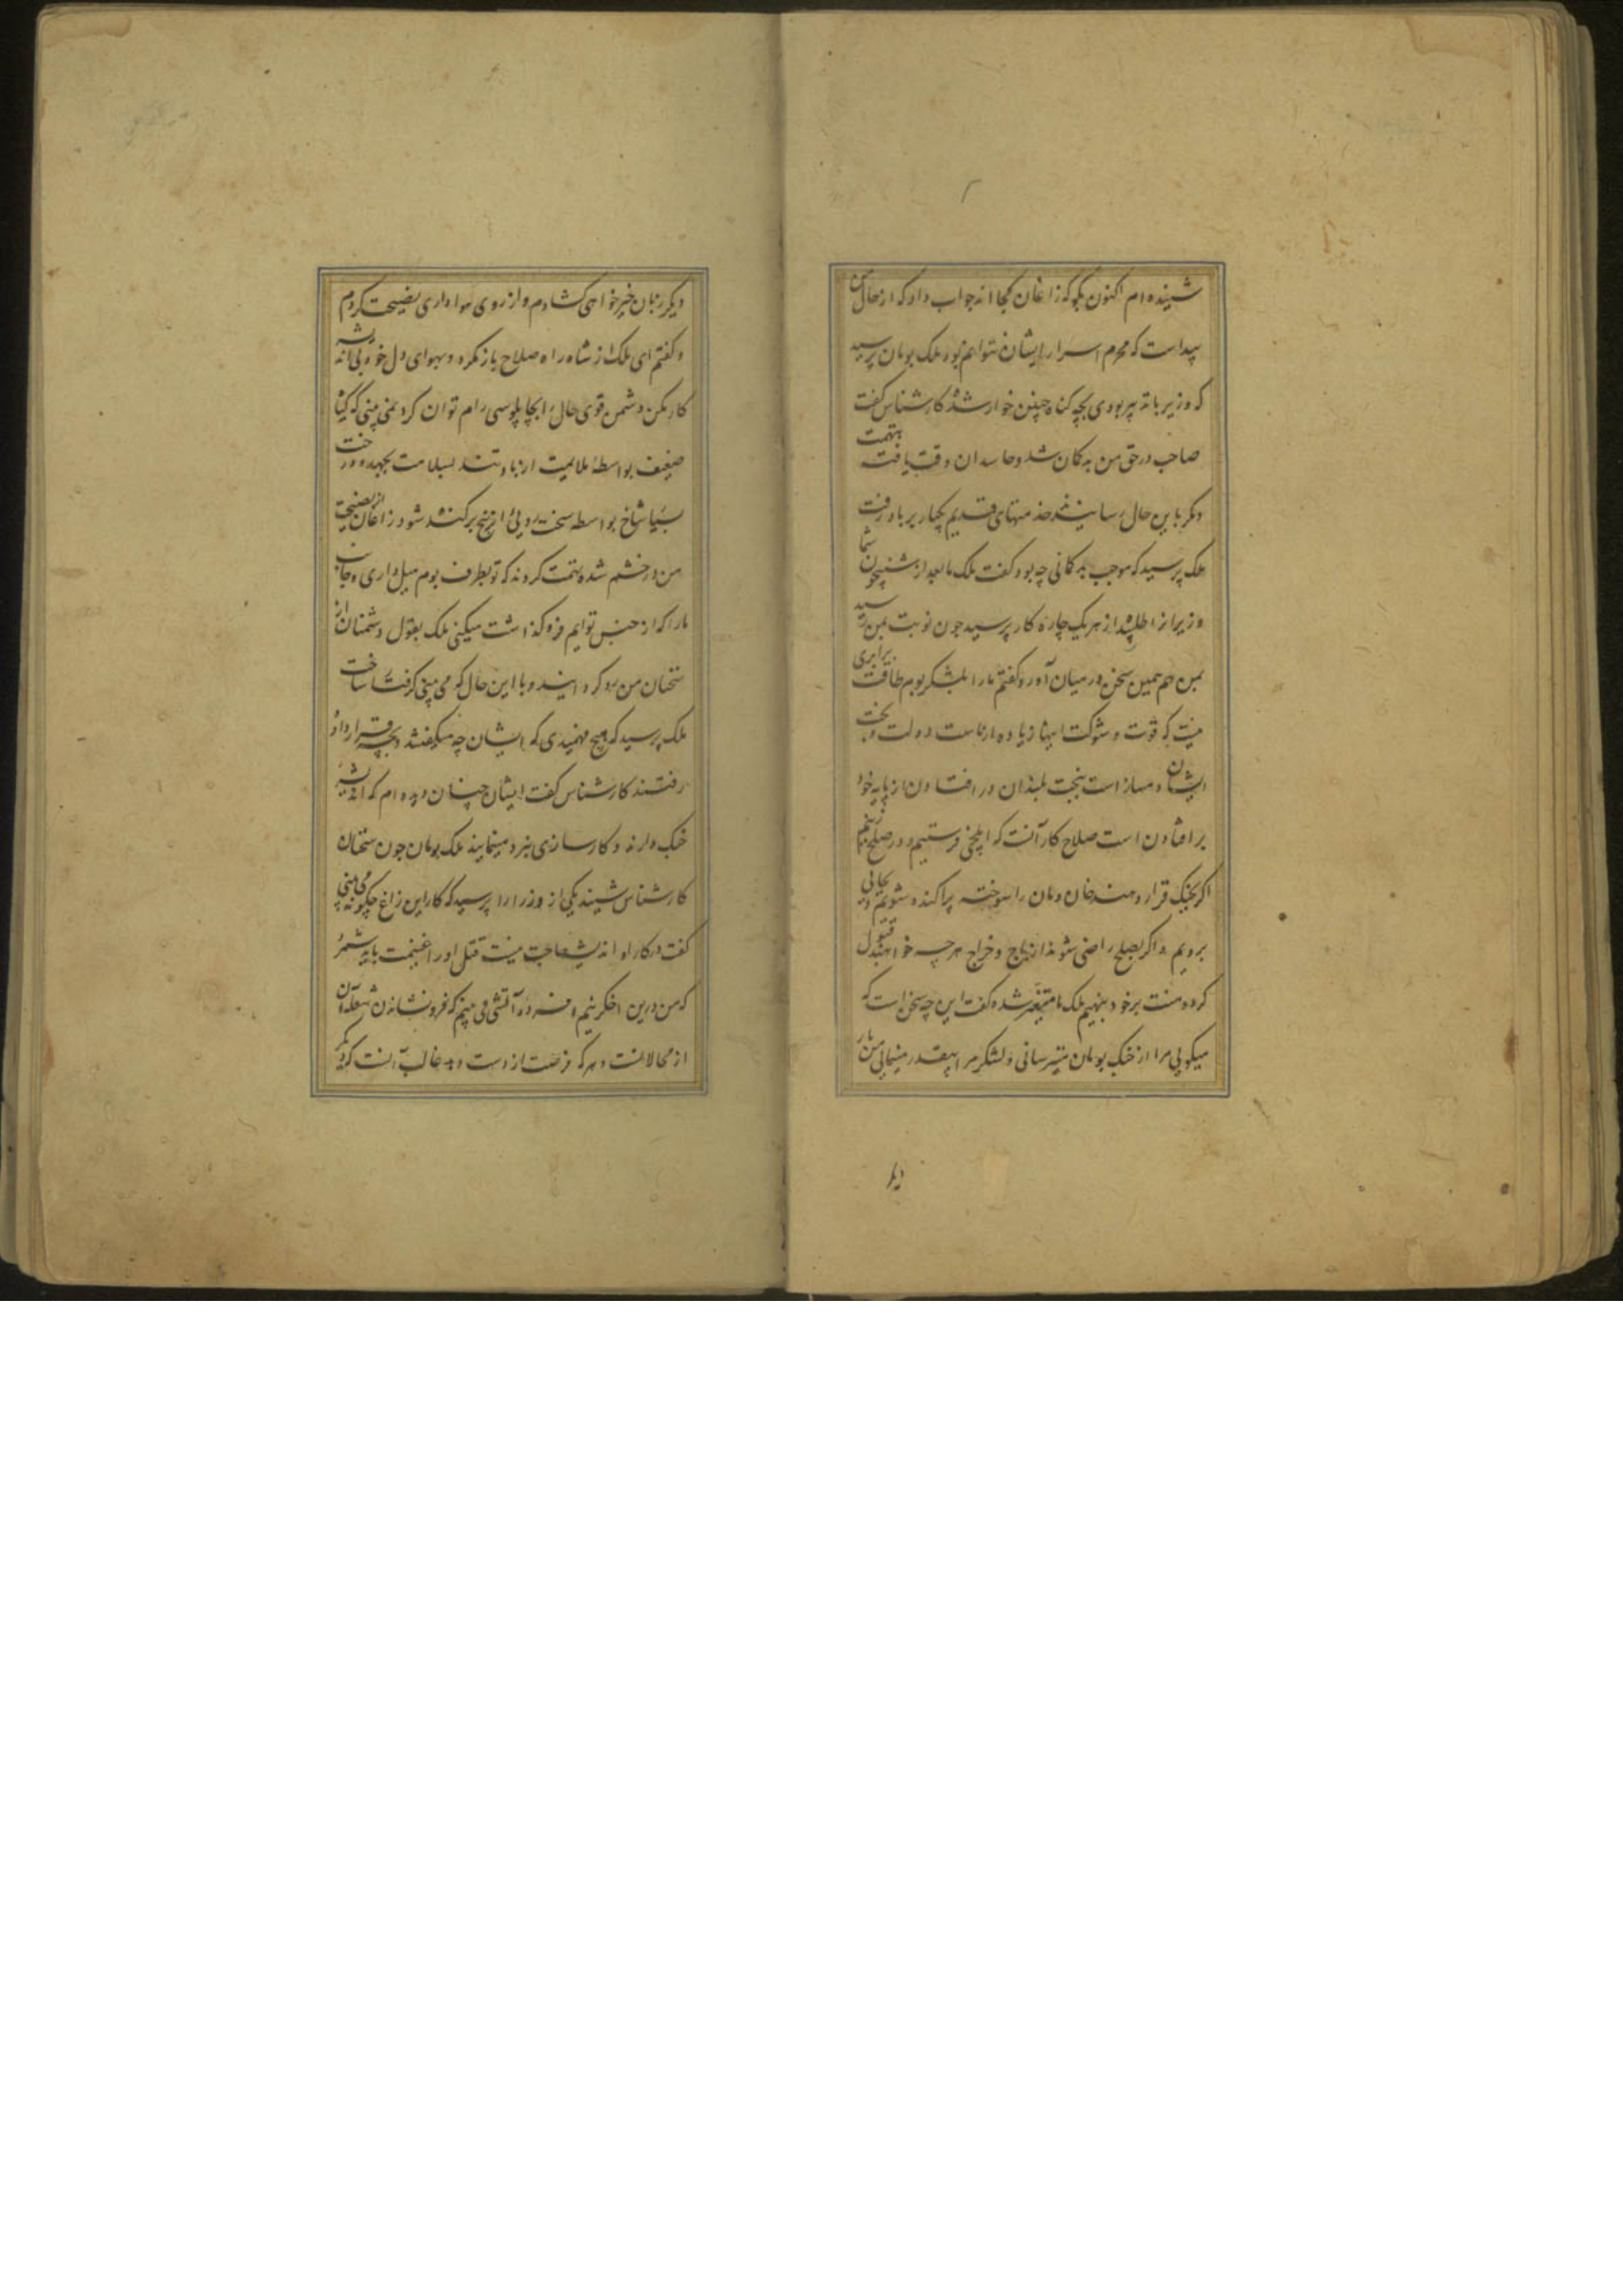 شنیده ام اکنون بگو که زاغان کجا اند جواب داد که از حال من
پیداست که محرم اسرار ایشان نتوانم بود ملک بومان پرسید
که وزیر با تدبیر بودی بچه گناه چنین خوار شدهٔ کارشناس گفت
صاحب در حق من بدگمان شد و حاسدان وقت یافته بتهمت
دیگر باین حال رسانیدند خدمتهای قدیم یکبار بر باد رفت
ملک پرسید که موجب بدگمانی چه بود گفت ملک ما بعد از شبیخون شما
وزیرانرا طلبید از هر یک چاره کار پرسید چون نوبت بمن رسید
بمن هم همین سخن در میان آورد گفتم ما را بلشکر بوم طاقت برابری
نیست که قوت و شوکت اینها زیاده از ماست و دولت و بخت
ایشان دمساز است بنجت بلندان در افتادن از پایه خود
بر افتادن است صلاح کار آنست که ایلچی فرستیم و در صلح زنیم
اگر بجنگ قرار دهند خان و مان را سوخته پراکنده شویم و بجائی
برویم و اگر بصلح راضی شوند از باج و خراج هر چه خواهند قبول
کرده منت بر خود بنهیم ملک ما متغیر شده گفت این چه سخن است که
میگویی مرا از جنگ بومان میترسانی و لشکر مرا بیقدر مینمایی من بار
دیگر
دیگر زبان خیرخواهی گشادم و از روی هواداری نصیحت کردم
و گفتم ای ملک از شاه راه صلاح باز مگرد و بهوای دل خود بی اندیشه
کار مکن دشمن قوی حال را بچاپلوسی رام توان کرد نمی بینی که گیاه
ضعیف بواسطهٔ ملایمت از باد تند بسلامت بجهد و درخت
بسیار شاخ بواسطه سخت رویئ از بیخ برکنده شود زاغان از نصیحت
من در خشم شده تهمت کردند که تو بطرف بوم میل داری و جانب
ما را که از جنس توایم فرو گذاشت میکنی ملک بقول دشمنان از
سخنان من رو گردانید و با این حال که می بینی گرفتار ساخت
ملک پرسید که هیچ فهمیدی که ایشان چه میگفتند و بچه قرار داد
رفتند کارشناس گفت ایشان چنان دیده ام که اندیشه
جنگ دارند و کارسازی نبرد مینمایند ملک بومان چون سخنان
کارشناس شنید یکی از وزرا را پرسید که کار این زاغ چگونه می بینی
گفت در کار او اندیشه حاجت نیست قتل او را غنیمت باید شمرد
که من درین اخگر نیم افسرده آتشی می بینم که فرو نشاندن شعله آن
از محالاتست و هر که فرصت از دست دهد غالب آنست که دیگر